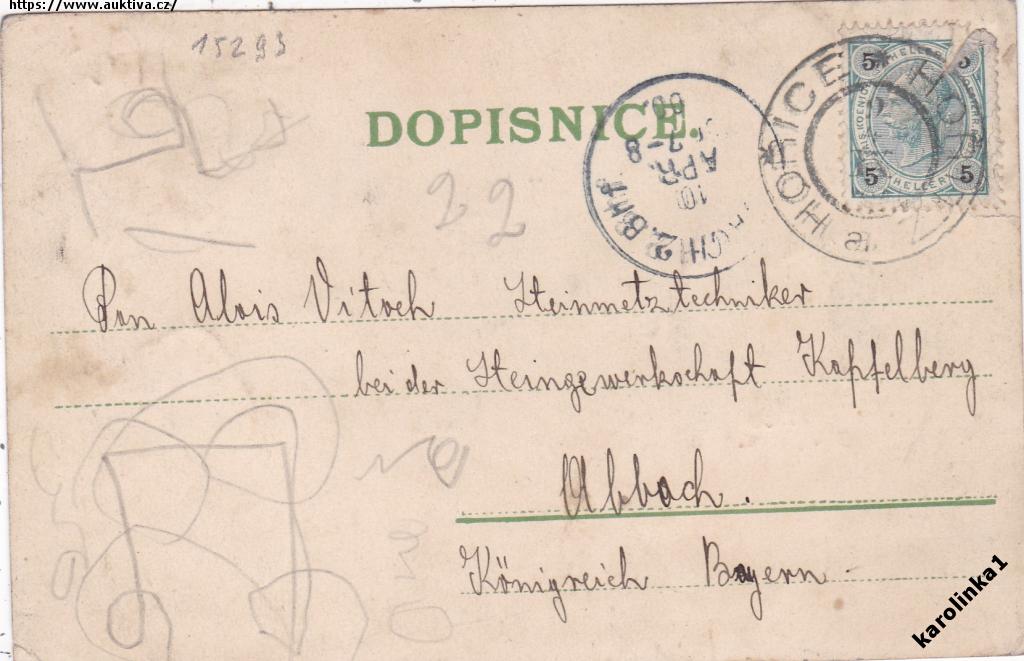 https://www.auktiva.cz/
15293
DOPISNICE.
22
5 5
5 HELLERY 5
HOŘICE HOŘ
2. BHF.
10
APR.
7-8
00
Pan Alois Vitoch Steinmetztechniker
bei der Steingewerkschaft Kapfelberg
Abbach.
Königreich Bayern
karolinka1